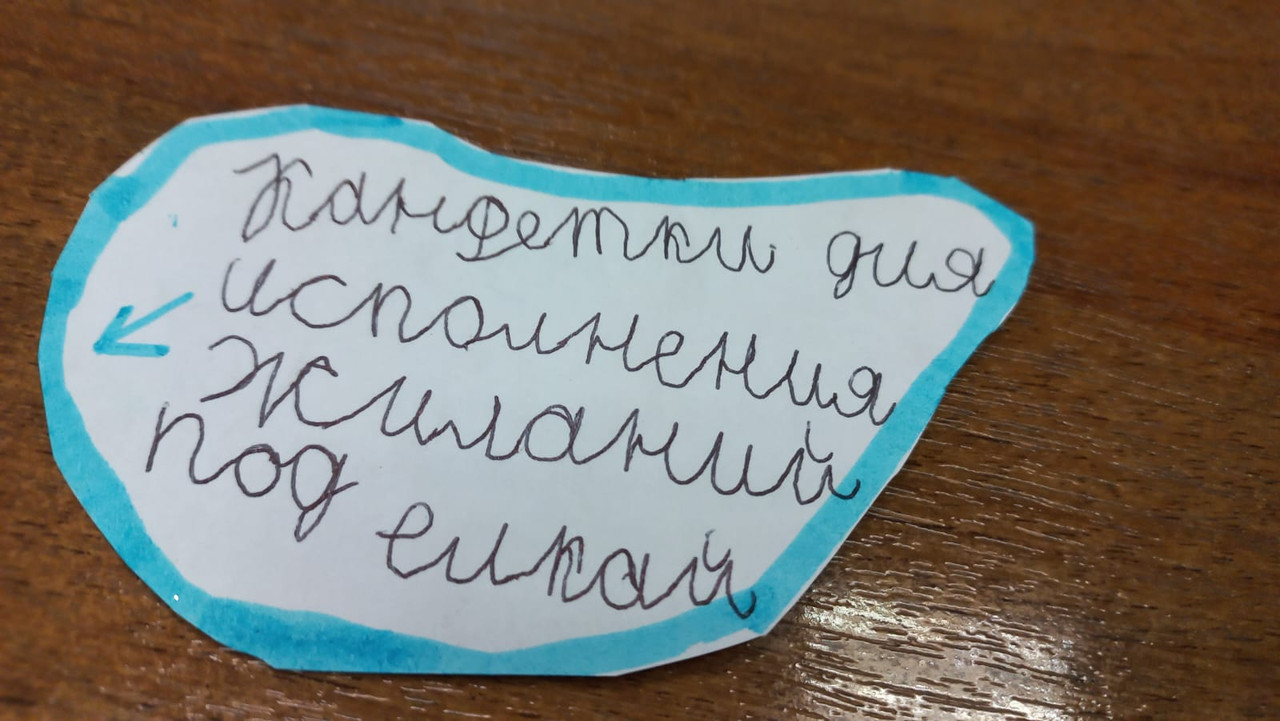 Канфетки для
исполнения
жиланий
под ёлкай